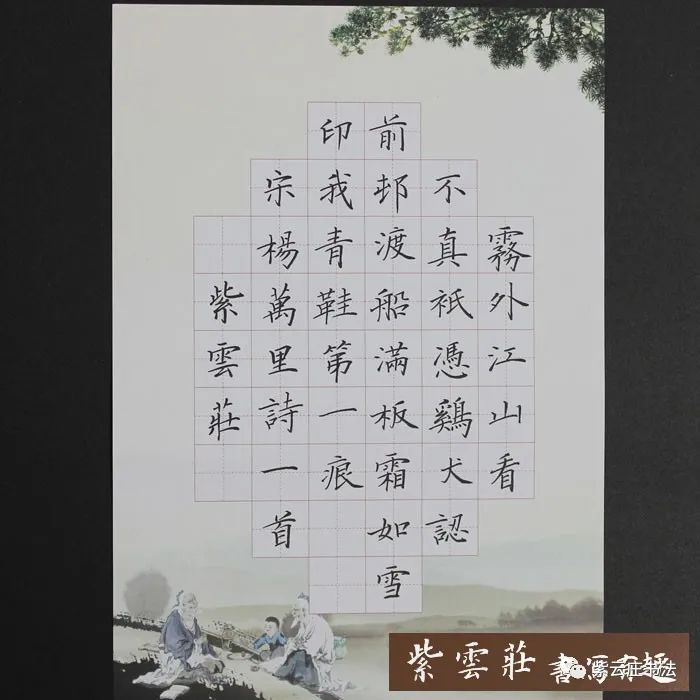 霧外江山看
不真祇憑鷄犬認
前邨渡船滿板霜如雪
印我青鞋第一痕
宋楊萬里詩一首
紫雲莊
紫雲莊
紫云庄书法